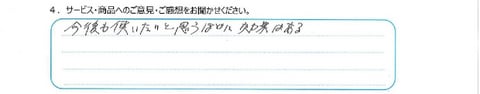 4．サービス・商品へのご意見・ご感想をお聞かせください。
今後も使いたいと思うほどに効果はある